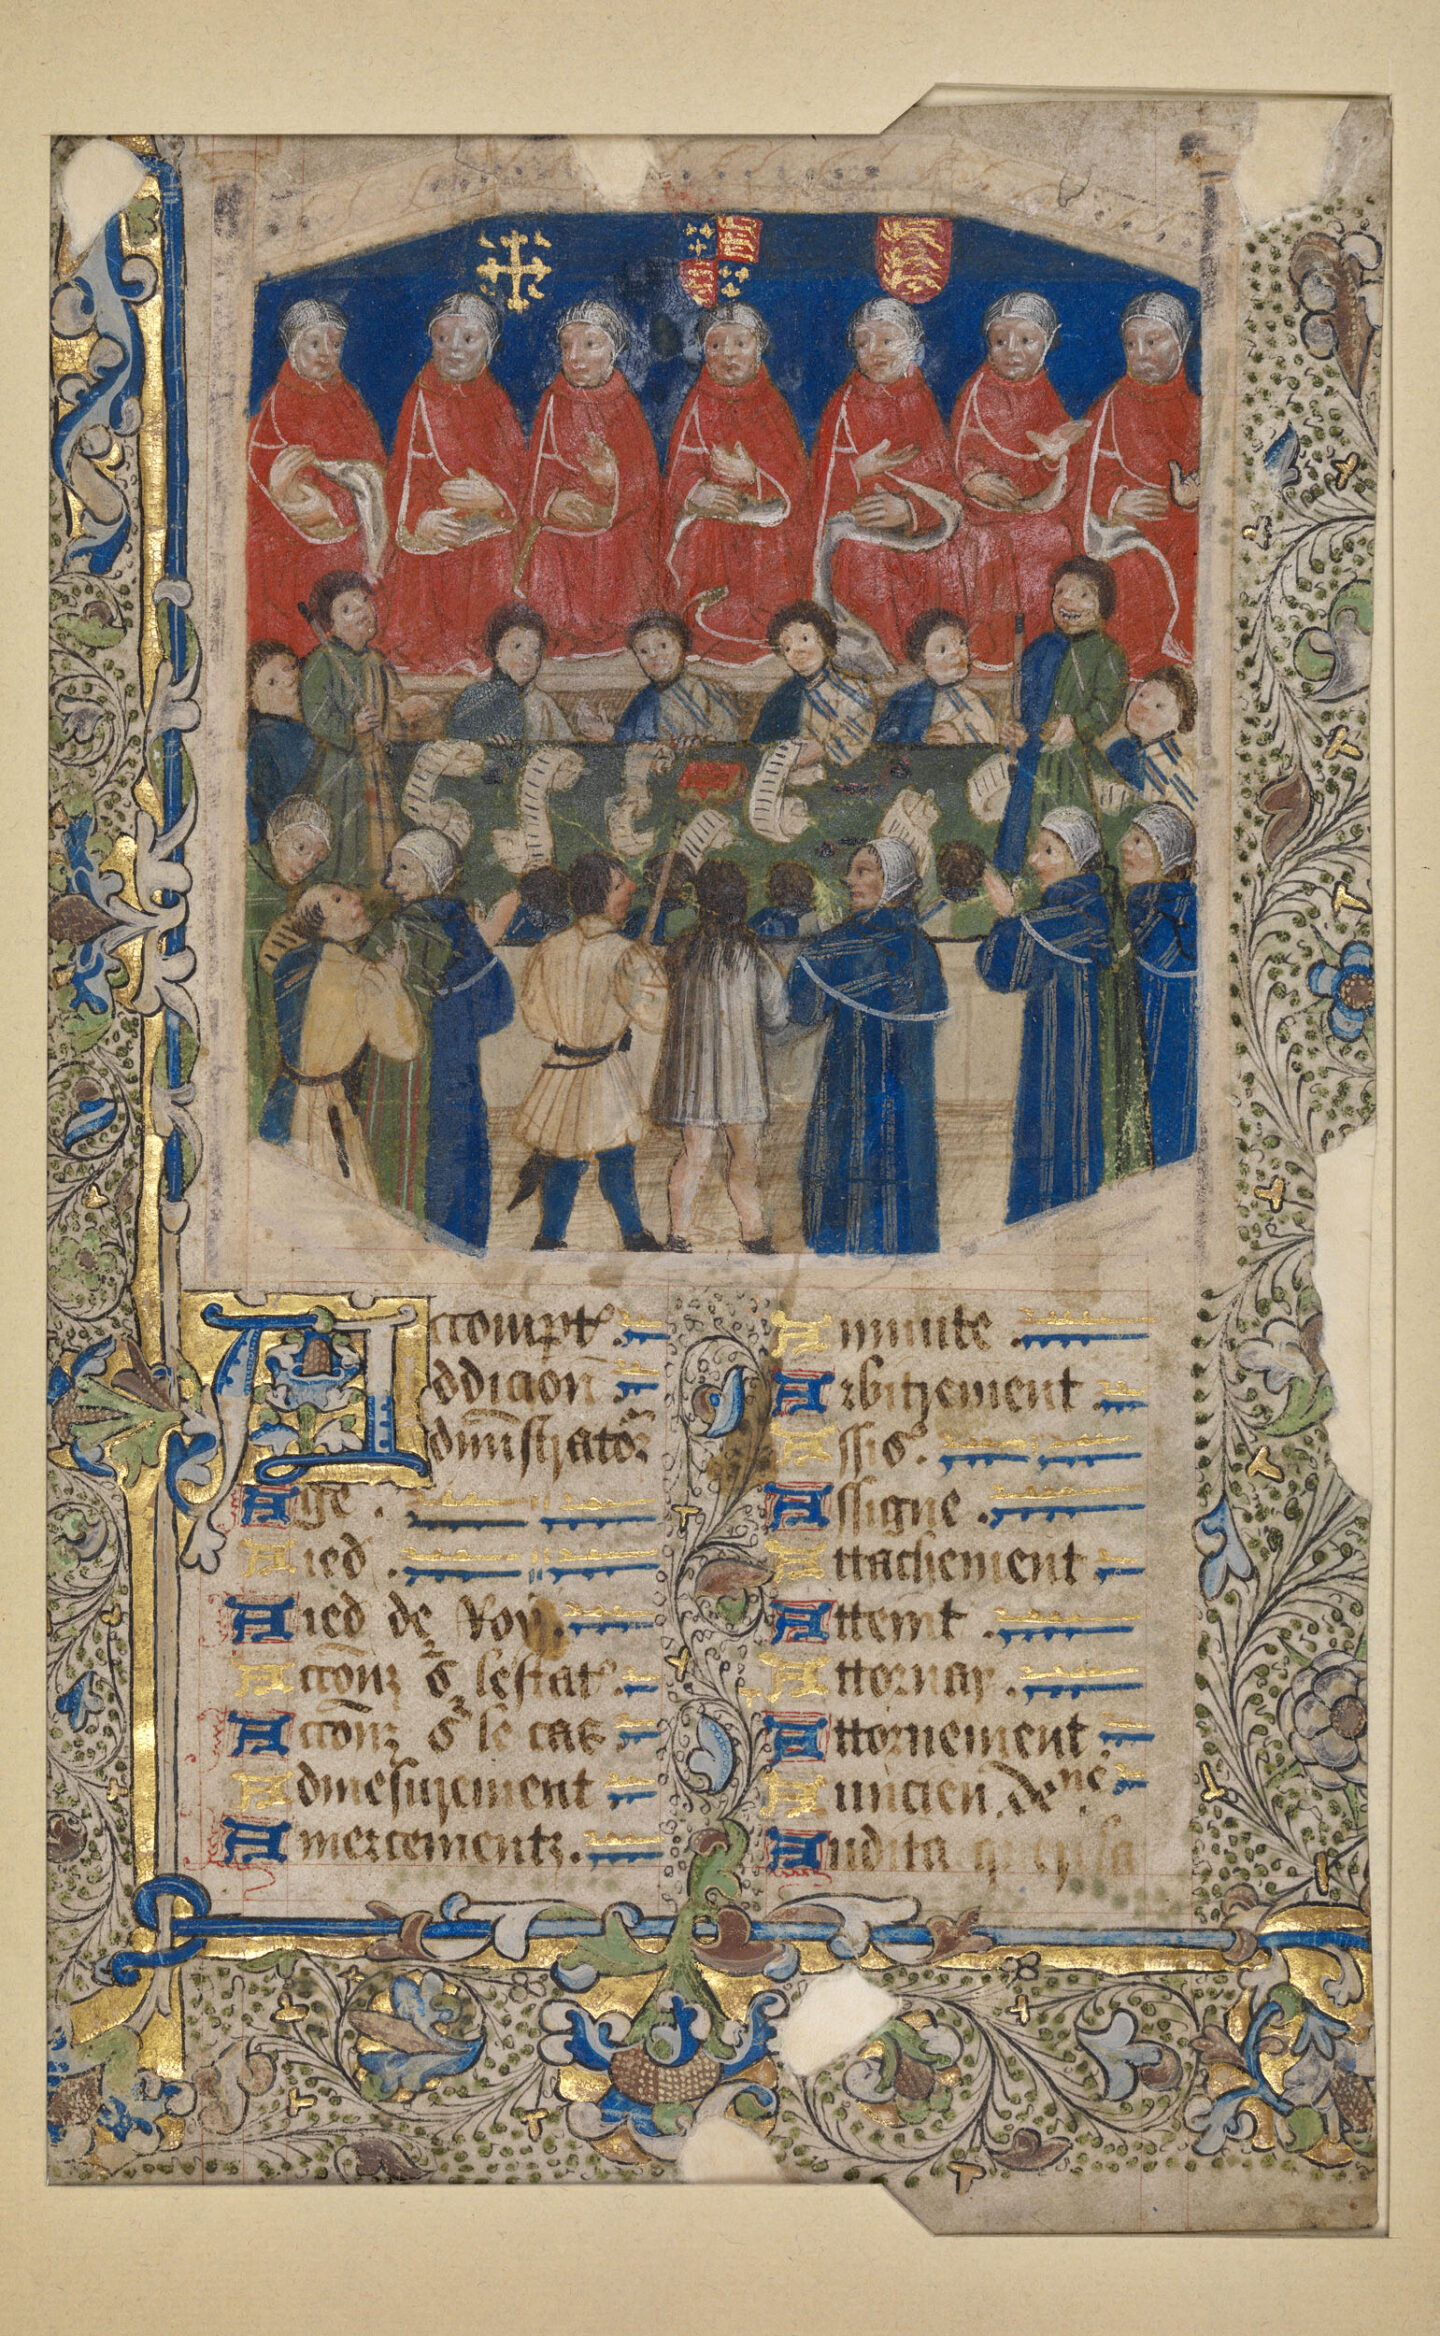 Accompt
Addicion
Administrator
Age
Aied
Aied de Roy
Accõnz sr lestat
Accõnz sr le cas
Admesurement
Amercementz
Annuite
Arbitrement
Assis
Assigne
Attachement
Atteint
Attornay
Attornement
Auncien demne
Audita querela